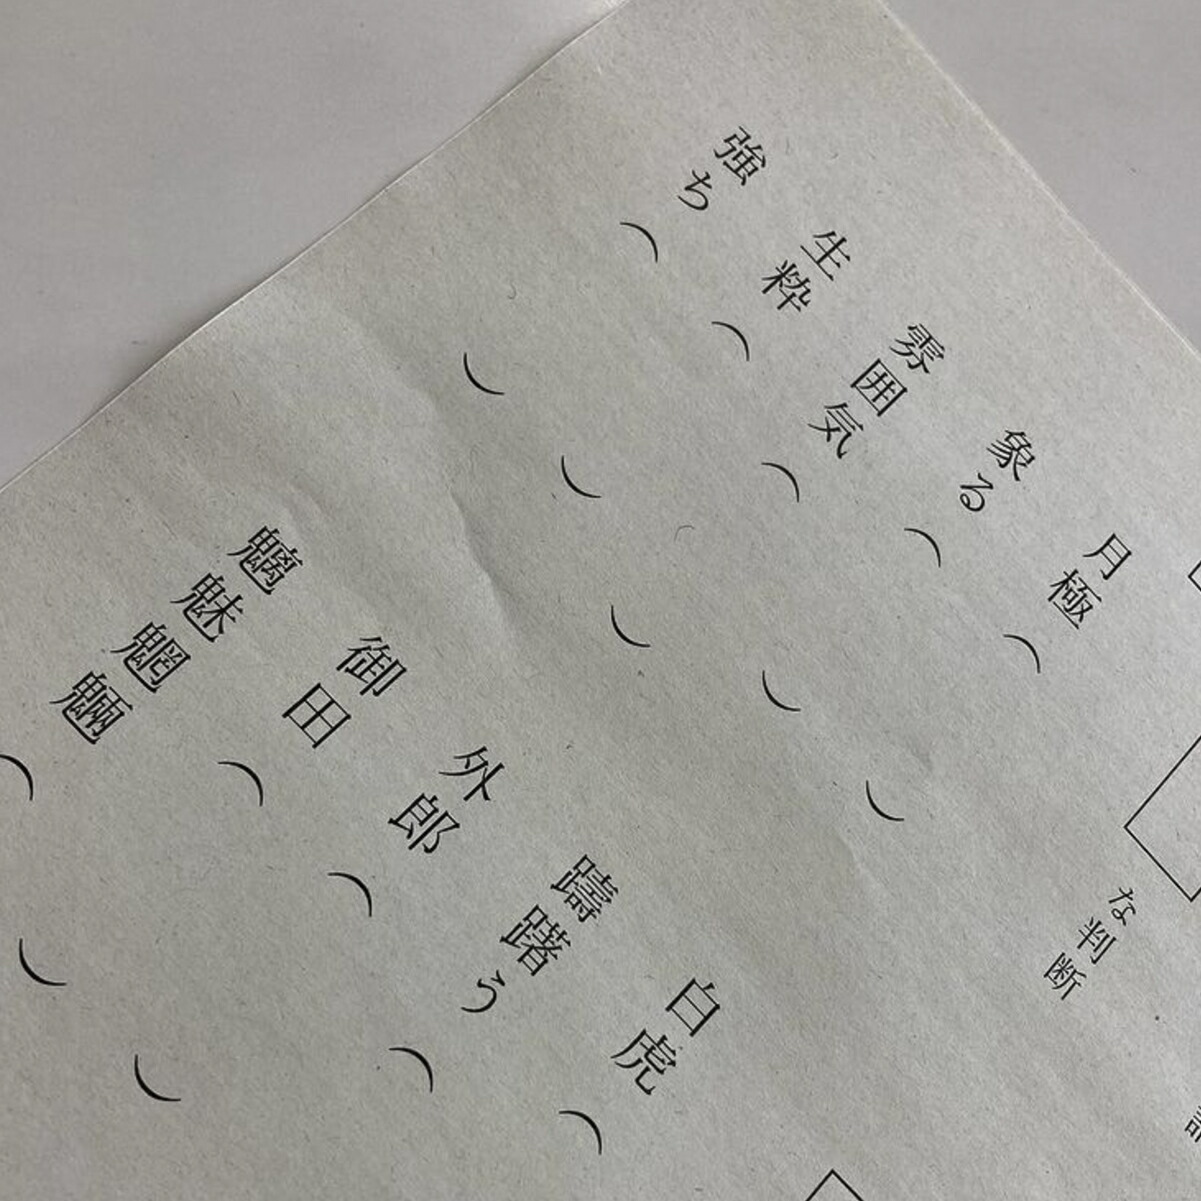 月極（　　）
象る（　　）
雰囲気（　　）
生粋（　　）
強ち（　　）
な判断
白虎（
躊躇う（
外郎（　　）
御田（　　）
魑魅魍魎（